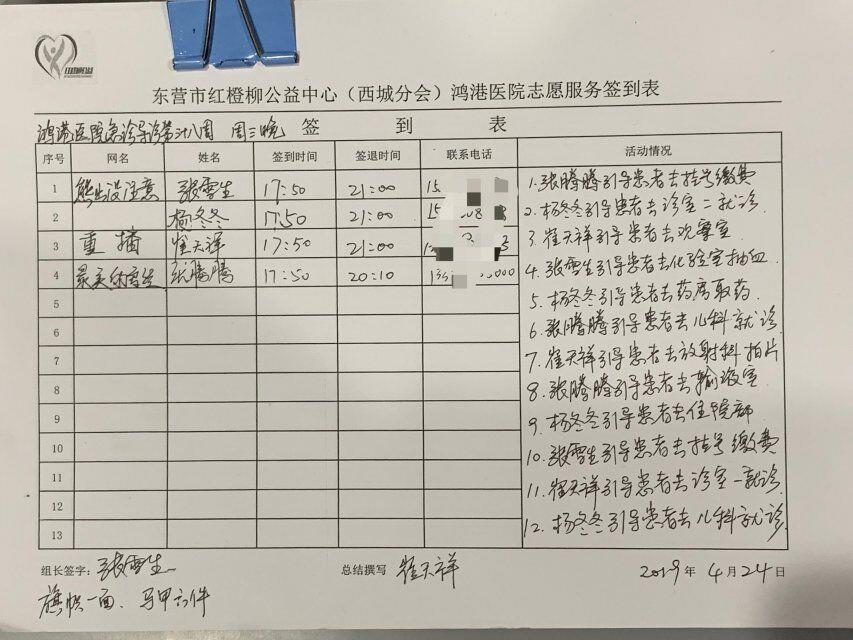 东营市红橙柳公益中心（西城分会）鸿港医院志愿服务签到表
鸿港医院急诊导诊第廿八周 周三晚 签到表
序号 网名 姓名 签到时间 签退时间 联系电话 活动情况
1 熊出没注意 张雪生 17:50 21:00 15
2 杨冬冬 17:50 21:00 15
3 重播 崔天祥 17:50 21:00
4 最美休宫生 张腾腾 17:50 20:10
5
6
7
8
9
10
11
12
13
1.张腾腾引导患者去挂号缴费
2.杨冬冬引导患者去诊室二就诊.
3.崔天祥引导患者去观察室
4.张雪生引导患者去化验室抽血
5.杨冬冬引导患者去药房取药.
6.张腾腾引导患者去儿科就诊
7.崔天祥引导患者去放射科拍片
8.张腾腾引导患者去输液室
9.杨冬冬引导患者去住院部
10.张雪生引导患者去挂号缴费
11.崔天祥引导患者去诊室一就诊.
12.杨冬冬引导患者去儿科就诊.
组长签字：张雪生 总结撰写 崔天祥 2019年4月24日
旗帜一面、马甲六件